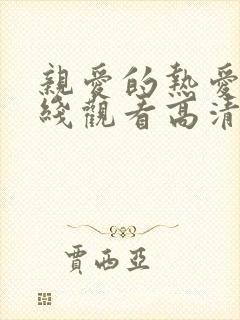 親愛的熱愛
綫觀看高清
賈西亞